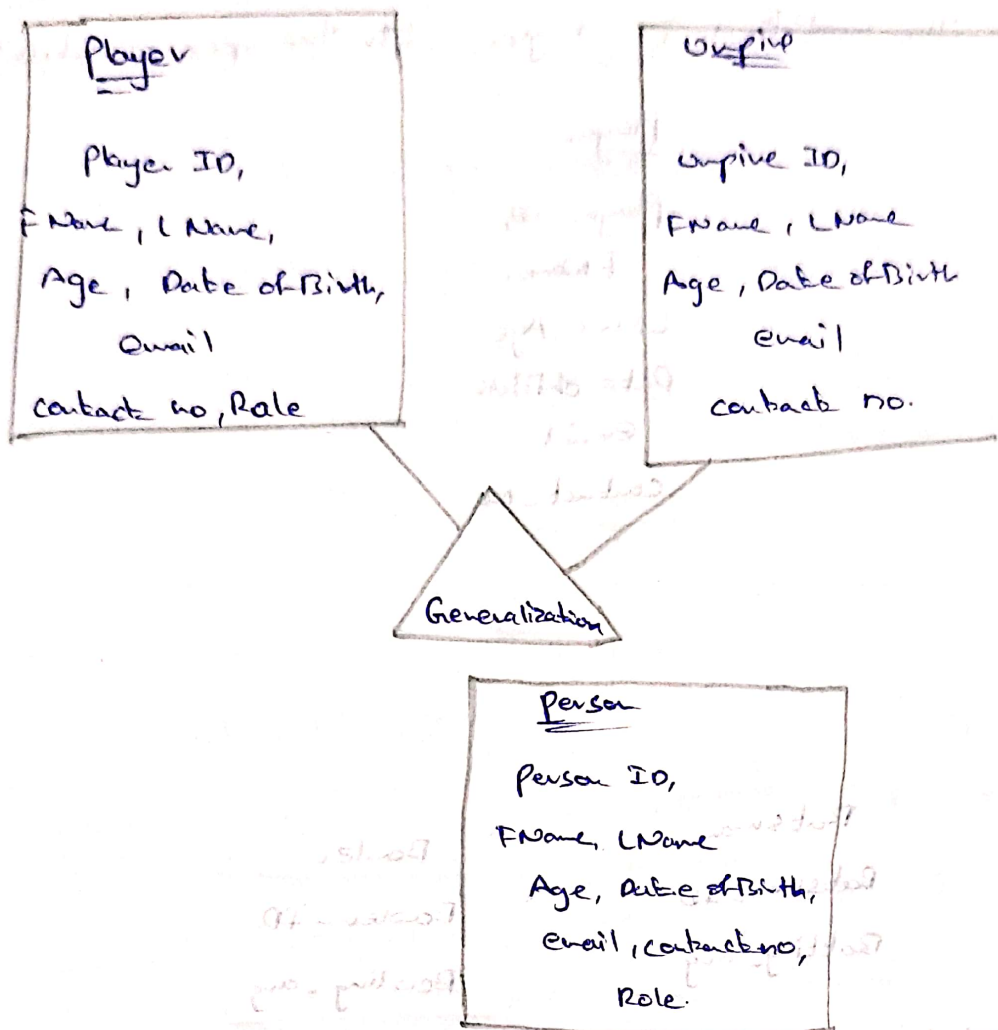 Player
Player ID,
FName, LName,
Age, Date of Birth,
email
contact no, Role
Umpire
umpire ID,
FName, LName
Age, Date of Birth
email
contact no.
Generalization
Person
Person ID,
FName, LName
Age, Date of Birth,
email, contact no,
Role.